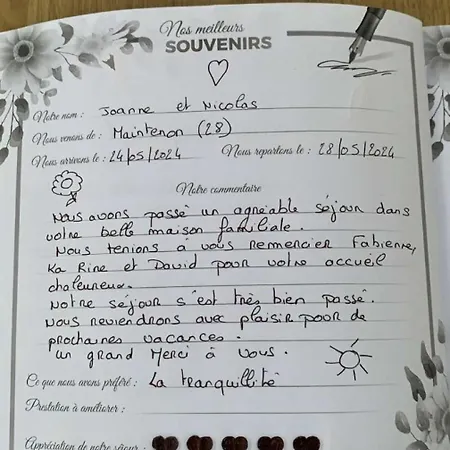 Nos meilleurs
SOUVENIRS
Notre nom : Joanne et Nicolas
Nous venons de : Maintenon (28)
Nous arrivons le : 24/05/2024 Nous repartons le : 28/05/2024
Notre commentaire
Nous avons passé un agréable séjour dans
votre belle maison familiale.
Nous tenions à vous remercier Fabienne,
Ka Rine et David pour votre accueil
chaleureux.
Notre séjour s'est très bien passé.
Nous reviendrons avec plaisir pour de
prochaines vacances.
un grand Merci à vous.
Ce que nous avons préféré : La tranquillité
Prestation à améliorer :
Appréciation de notre séjour :